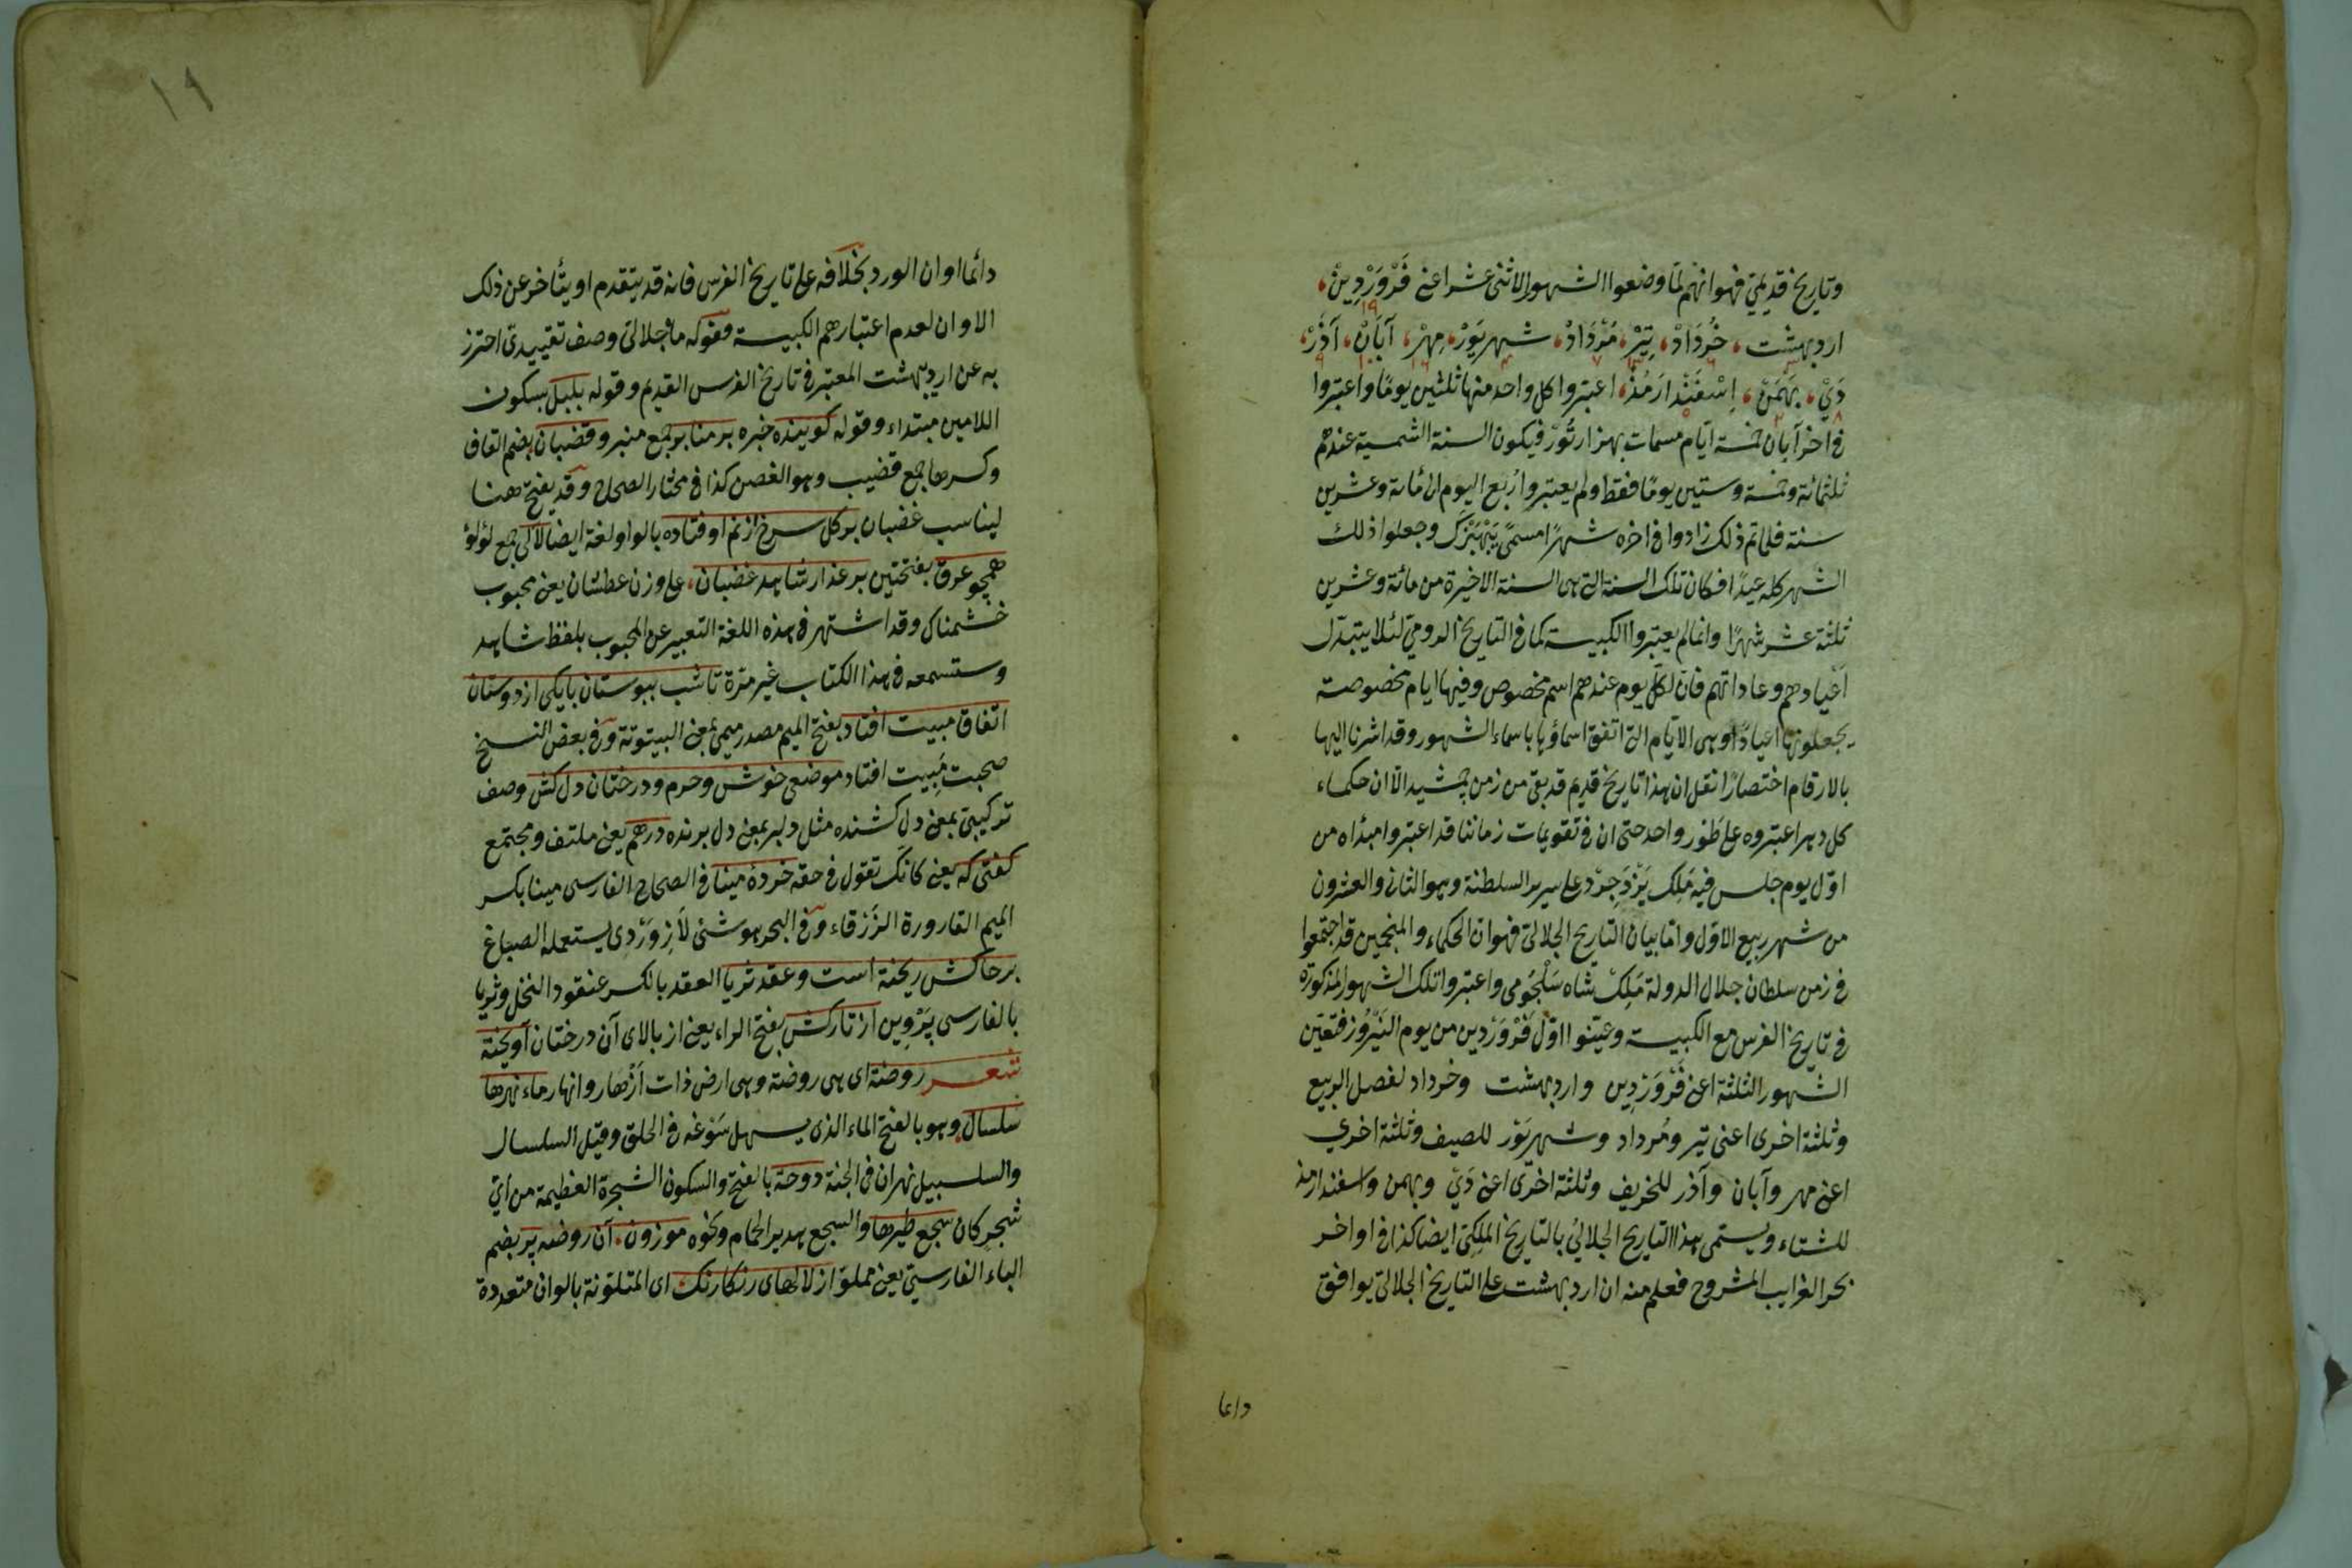 وتاريخ قديمي فهو انهم لما وضعوا الشهور الاثنى عشر اعنى فَرْوَرْدِينْ،
۱۹
ارديبهشت، خُرْدَادْ، تِيْر، مُرْدَادْ، شهريَوَرْ، مِهْر، آبَانْ، آذَرْ،
دَيْ، بَهْمَنْ، اِسْفَنْدارَمُذْ، اعتبروا كل واحد منها ثلثين يوما واعتبروا
فى اخر آبان خمسة ايام مسمات بهنزارتُوْر فيكون السنة الشمسية عندهم
ثلثمائة وخمسة وستين يوما فقط ولم يعتبروا رُبع اليوم الى مائة وعشرين
سنة فلما تم ذلك زادوا فى اخره شهرًا مسمى وجعلوا ذلك
الشهر كله عيدًا فكان تلك السنة التى هى السنة الاخيرة من مائة وعشرين
ثلثة عشر شهرًا وانما لم يعتبروا الكبيسة كما فى التاريخ الرومى لئلا يتبدل
اعيادهم وعاداتهم فان لكل يوم عندهم اسم مخصوص وفيها ايام مخصوصة
يجعلونها اعيادًا وهى الايام التى اتفق اسماؤها باسماء الشهور وقد اشرنا اليها
بالارقام اختصارًا نقل ان هذا تاريخ قديم قد بقى من زمن جمشيد الا ان حكماء
كل دهر اعتبروه على طَور واحد حتى ان فى تقويمات زماننا قد اعتبروا مبدأه من
اوّل يوم جلس فيه مَلِك يَزْدَجِرْد على سرير السلطنة وهو الثانى والعشرون
من شهر ربيع الاوّل واما بيان التاريخ الجلالى فهو ان الحكماء والمنجمين قد اجتمعوا
فى زمن سلطان جلال الدولة مَلِكْ شاه سَلْجُوقى واعتبروا تلك الشهور المذكورة
فى تاريخ الفرس مع الكبيسة وعينوا اوّل فَرْوَرْدين من يوم النَيْرُوز فتعين
الشهور الثلثة اعنى فَرْوَرْدِين وارديبهشت وخرداد لفصل الربيع
وثلثة اخرى اعنى تير ومُرداد وشهريَوَر للصيف وثلثة اخرى
اعنى مهر وآبان وآذر للخريف وثلثة اخرى اعنى دَىْ وبهمن واسفندارمذ
للشتاء ويسمى هذا التاريخ الجلالىُ بالتاريخ المَلِكىّ ايضا كذا فى اواخر
بحر الغرايب المشروح فعلم منه ان ارديبهشت على التاريخ الجلالى يوافق
دائما
۱۹
دائما اوان الورد بخلافه على تاريخ الفرس فانه قد يتقدم او يتأخر عن ذلك
الاوان لعدم اعتبارهم الكبيسة فقوله ماه جلالى وصف تقييدى احترز
به عن ارديبهشت المعتبر فى تاريخ الفرس القديم وقوله بلبل بسكون
اللامين مبتداء وقوله كوينده خبره بر منابر جمع منبر وقضبان بضم القاف
وكسرها جمع قضيب وهو الغصن كذا فى مختار الصحاح وقد يفتح هنا
ليناسب غضبان بر كل سرخ از نم اوفتاده بالواو لغة ايضا لآلى جمع لؤلؤ
همچو عرق بفتحتين بر عذار شاهد غضبان، على وزن عطشان يعنى محبوب
خشمناك وقد اشتهر فى هذه اللغة التعبير عن المحبوب بلفظ شاهد
وستسمعه فى هذا الكتاب غير مرّة تا شب ببوستان با يكى از دوستان
اتفاق مبيت افتاد بفتح الميم مصدر ميمى بمعنى البيتوتة وفى بعض النسخ
صحبت مَبِيت افتاد موضعى خوش وخرم ودرختان دل كش وصف
تركيبى بمعنى دل كشنده مثل دلبر بمعنى دل برنده درهم يعنى ملتف ومجتمع
كفتى كه يعنى كانك تقول فى حقه خردهٔ مينا فى الصحاح الفارسى مينا بكسر
الميم القارورة الزَرْقاء وفى البحر هو شئ لَازِوَرْدى يستعمله الصباغ
برخاكش ريخته است وعقد ثريا العقد بالكسر عنقود النخل وثريا
بالفارسى پَرْوِين از تاركش بفتح الراء يعنى از بالاى آن درختان آويخته
شعر روضة اى هى روضة وهى ارض ذات اَزْهار وانهار ماء نهرها
سلسال وهو بالفتح الماء الذى يسهل سَوْغه فى الحلق وقيل السلسال
والسلسبيل نهران فى الجنة دوحة بالفتح والسكون الشجرة العظيمة من اىّ
شجر كان سجع طيرها والسجع هدير الحمام ونحوه موزون. آن روضه پر بضم
الباء الفارسىّ يعنى مملوّ از لالهاى رنكارنك اى المتلوّنة بالوان متعددة